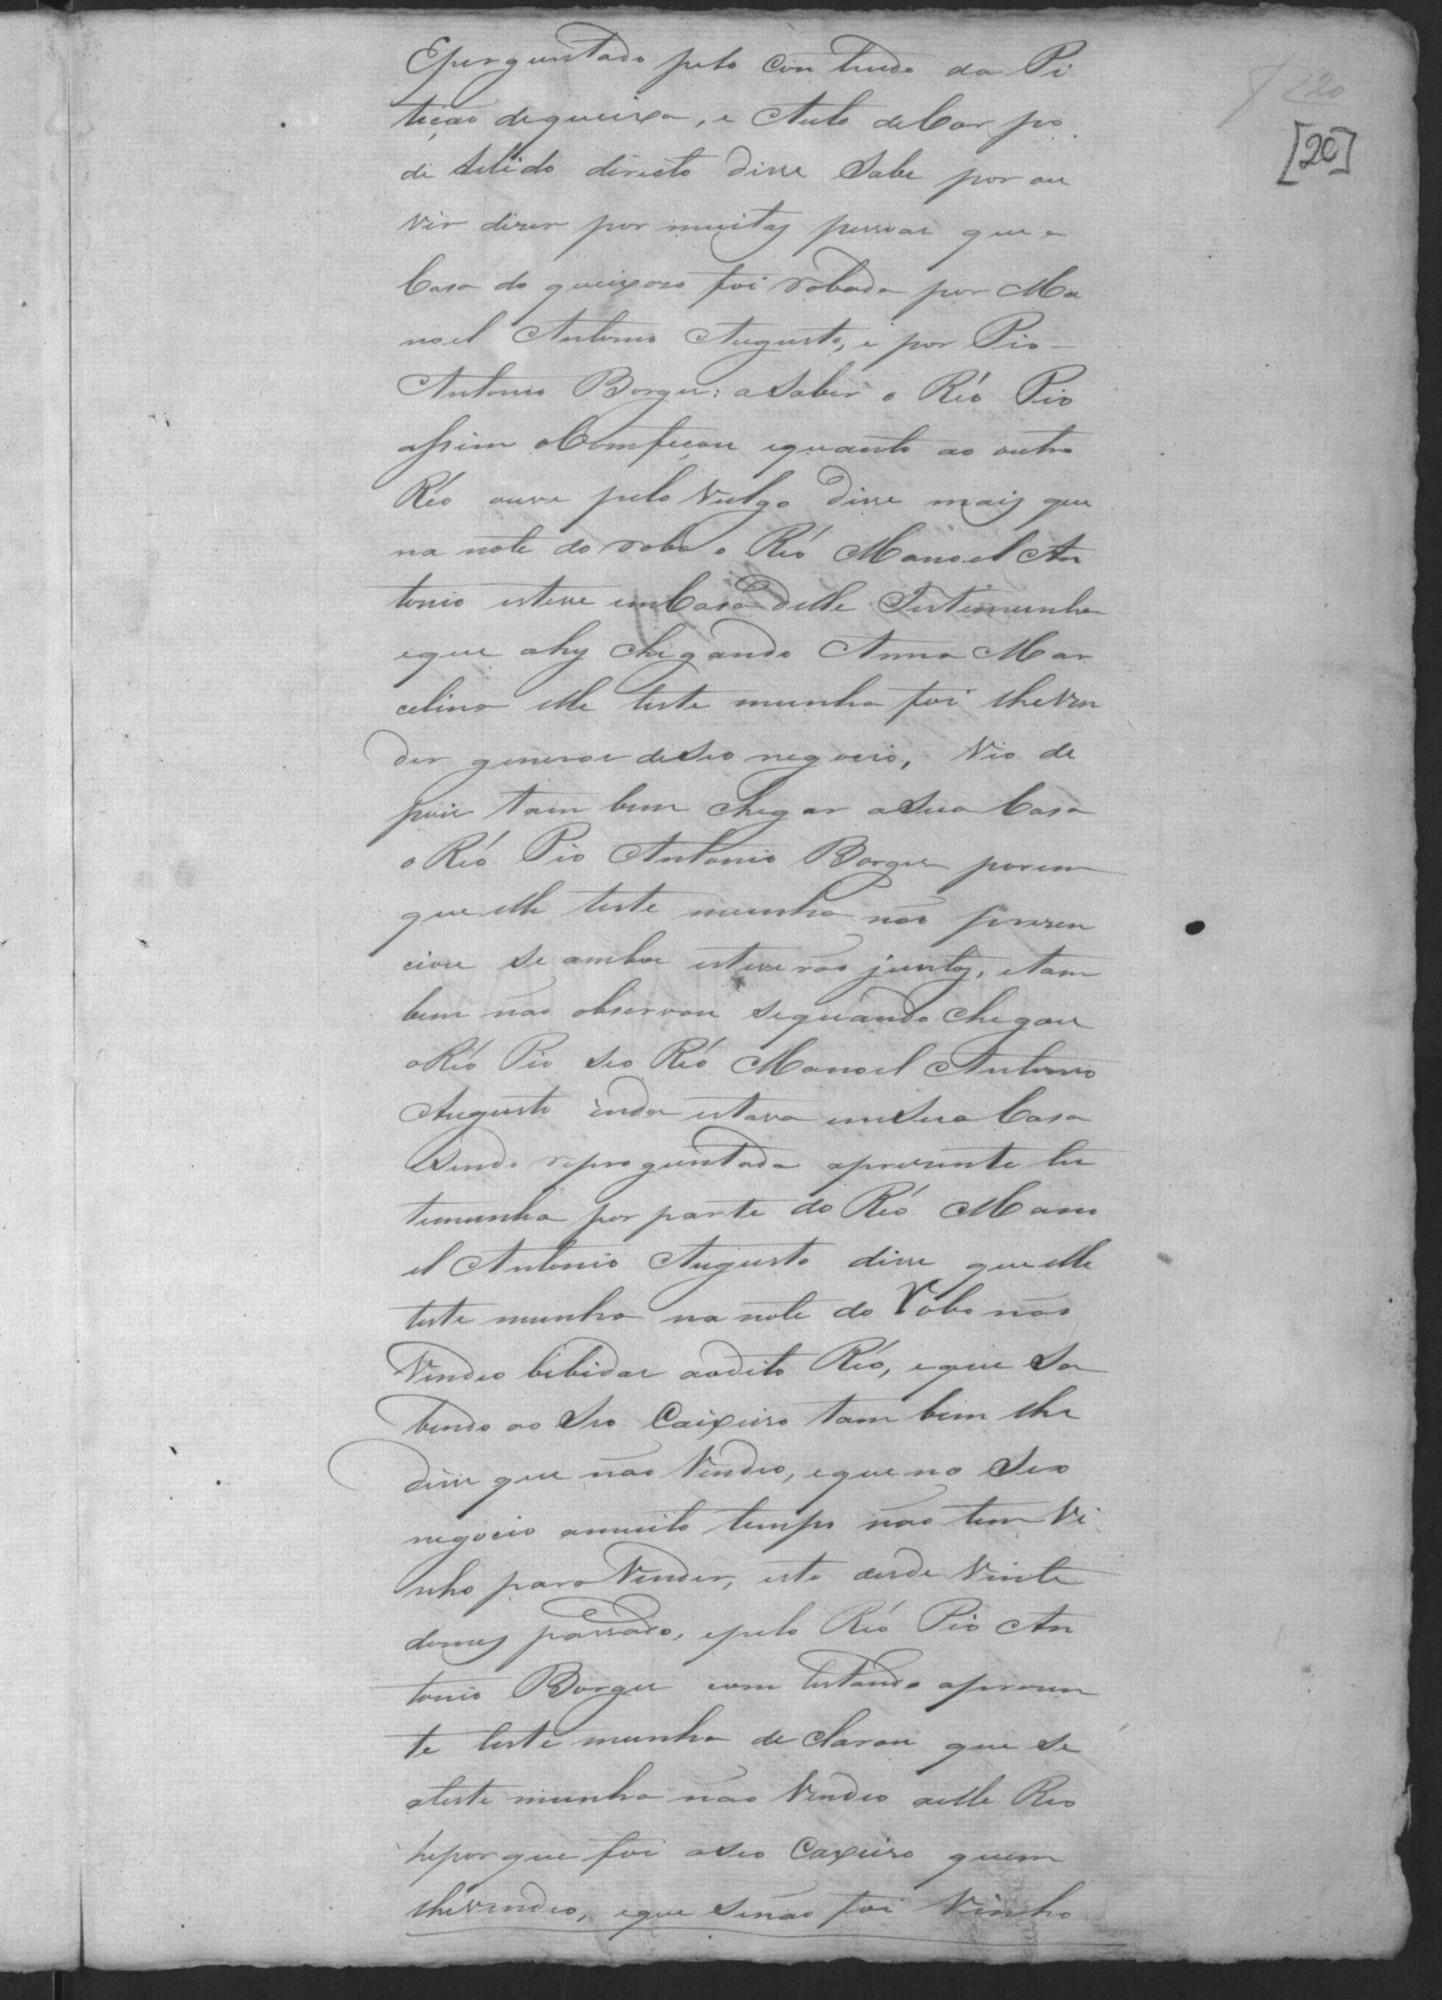 20
[20]
Eperguntado pelo Contheudo da Pi
tiçao dequeixa, e Auto deCorpo
de delicto directo disse Sabe por ou
vir diser por muitas pessoas que a
Casa do queixoso foi robada por Ma
noel Antonio Augusto, e por Pio
Antonio Borges: asaber o Réo Pio
assim oComfeçou equanto ao outro
Réo ouve pelo Vulgo disse mais que
na note do robo o Réo Manoel An
tonio esteve emCasa delle Testimunha
eque ahy chegando Anna Mar
celina elle teste munha foi lheven
der generos deseo negocio, Vio de
pois tam bem chegar asua Casa
o Réo Pio Antonio Borges porem
que elle teste munha não prezen
ciou se ambos estiverão juntos, etam
bem não observou sequando chegou
oRéo Pio seo Réo Manoel Antonio
Augusto inda estava emsua Casa
Sendo reproguntada apresente tes
temunha por parte do Réo Mano
el Antonio Augusto disse que elle
teste munha na note do robo não
Vendeo bibidas aodito Réo, eque sa
bendo ao Seo Caixeiro tam bem lhe
disse que não Vendeo, eque no Seo
negocio amuito tempo não tem Vi
nho para Vender, isto desde Vinte
domes passado, epelo Réo Pio An
tonio Borges com testando apresen
te teste munha de clarou que se
ateste munha não Vendeo aelle Reo
heporque foi oseo Caxeiro quem
lhevendeo, eque senão foi Vinho